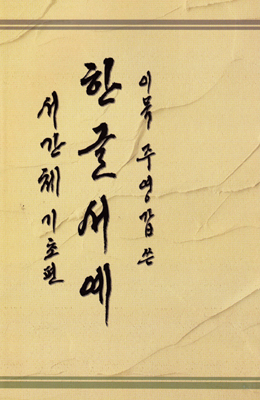 이목 주영갑 쓴
한글서예
서간체 기초편